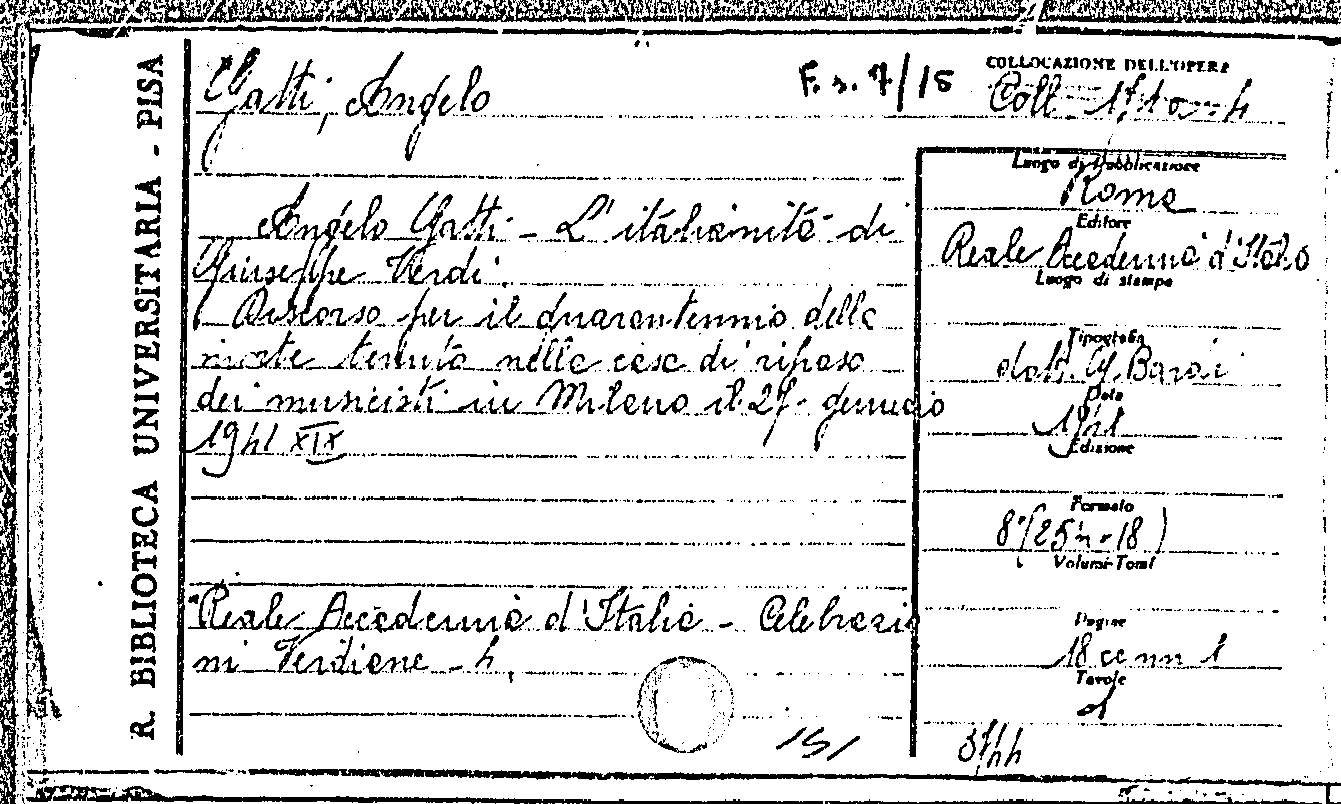 R. BIBLIOTECA UNIVERSITARIA - PISA
Gatti, Angelo
F. s. 7/15
COLLOCAZIONE DELL'OPERA
Coll.
Angelo Gatti - L'italianità di
Giuseppe Verdi.
Discorso per il quarantennio della
morte tenuto nella casa di riposo
dei musicisti in Milano il 27 gennaio
1941 XIX
Reale Accademia d'Italia - Celebrazio
ni Verdiane - 4.
151
Luogo di Pubblicazione
Roma
Editore
Reale Accademia d'Italia
Luogo di stampa
Tipografia
dott. G. Bardi
Data
1941
Edizione
Formato
8°(25
18)
Volumi-Tomi
Pagine
18 cc nn 1
Tavole